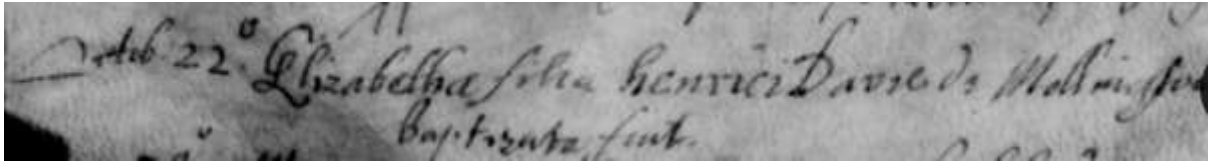 22° Elizabetha filia Henrici Davie de Mollington
baptizata fuit.